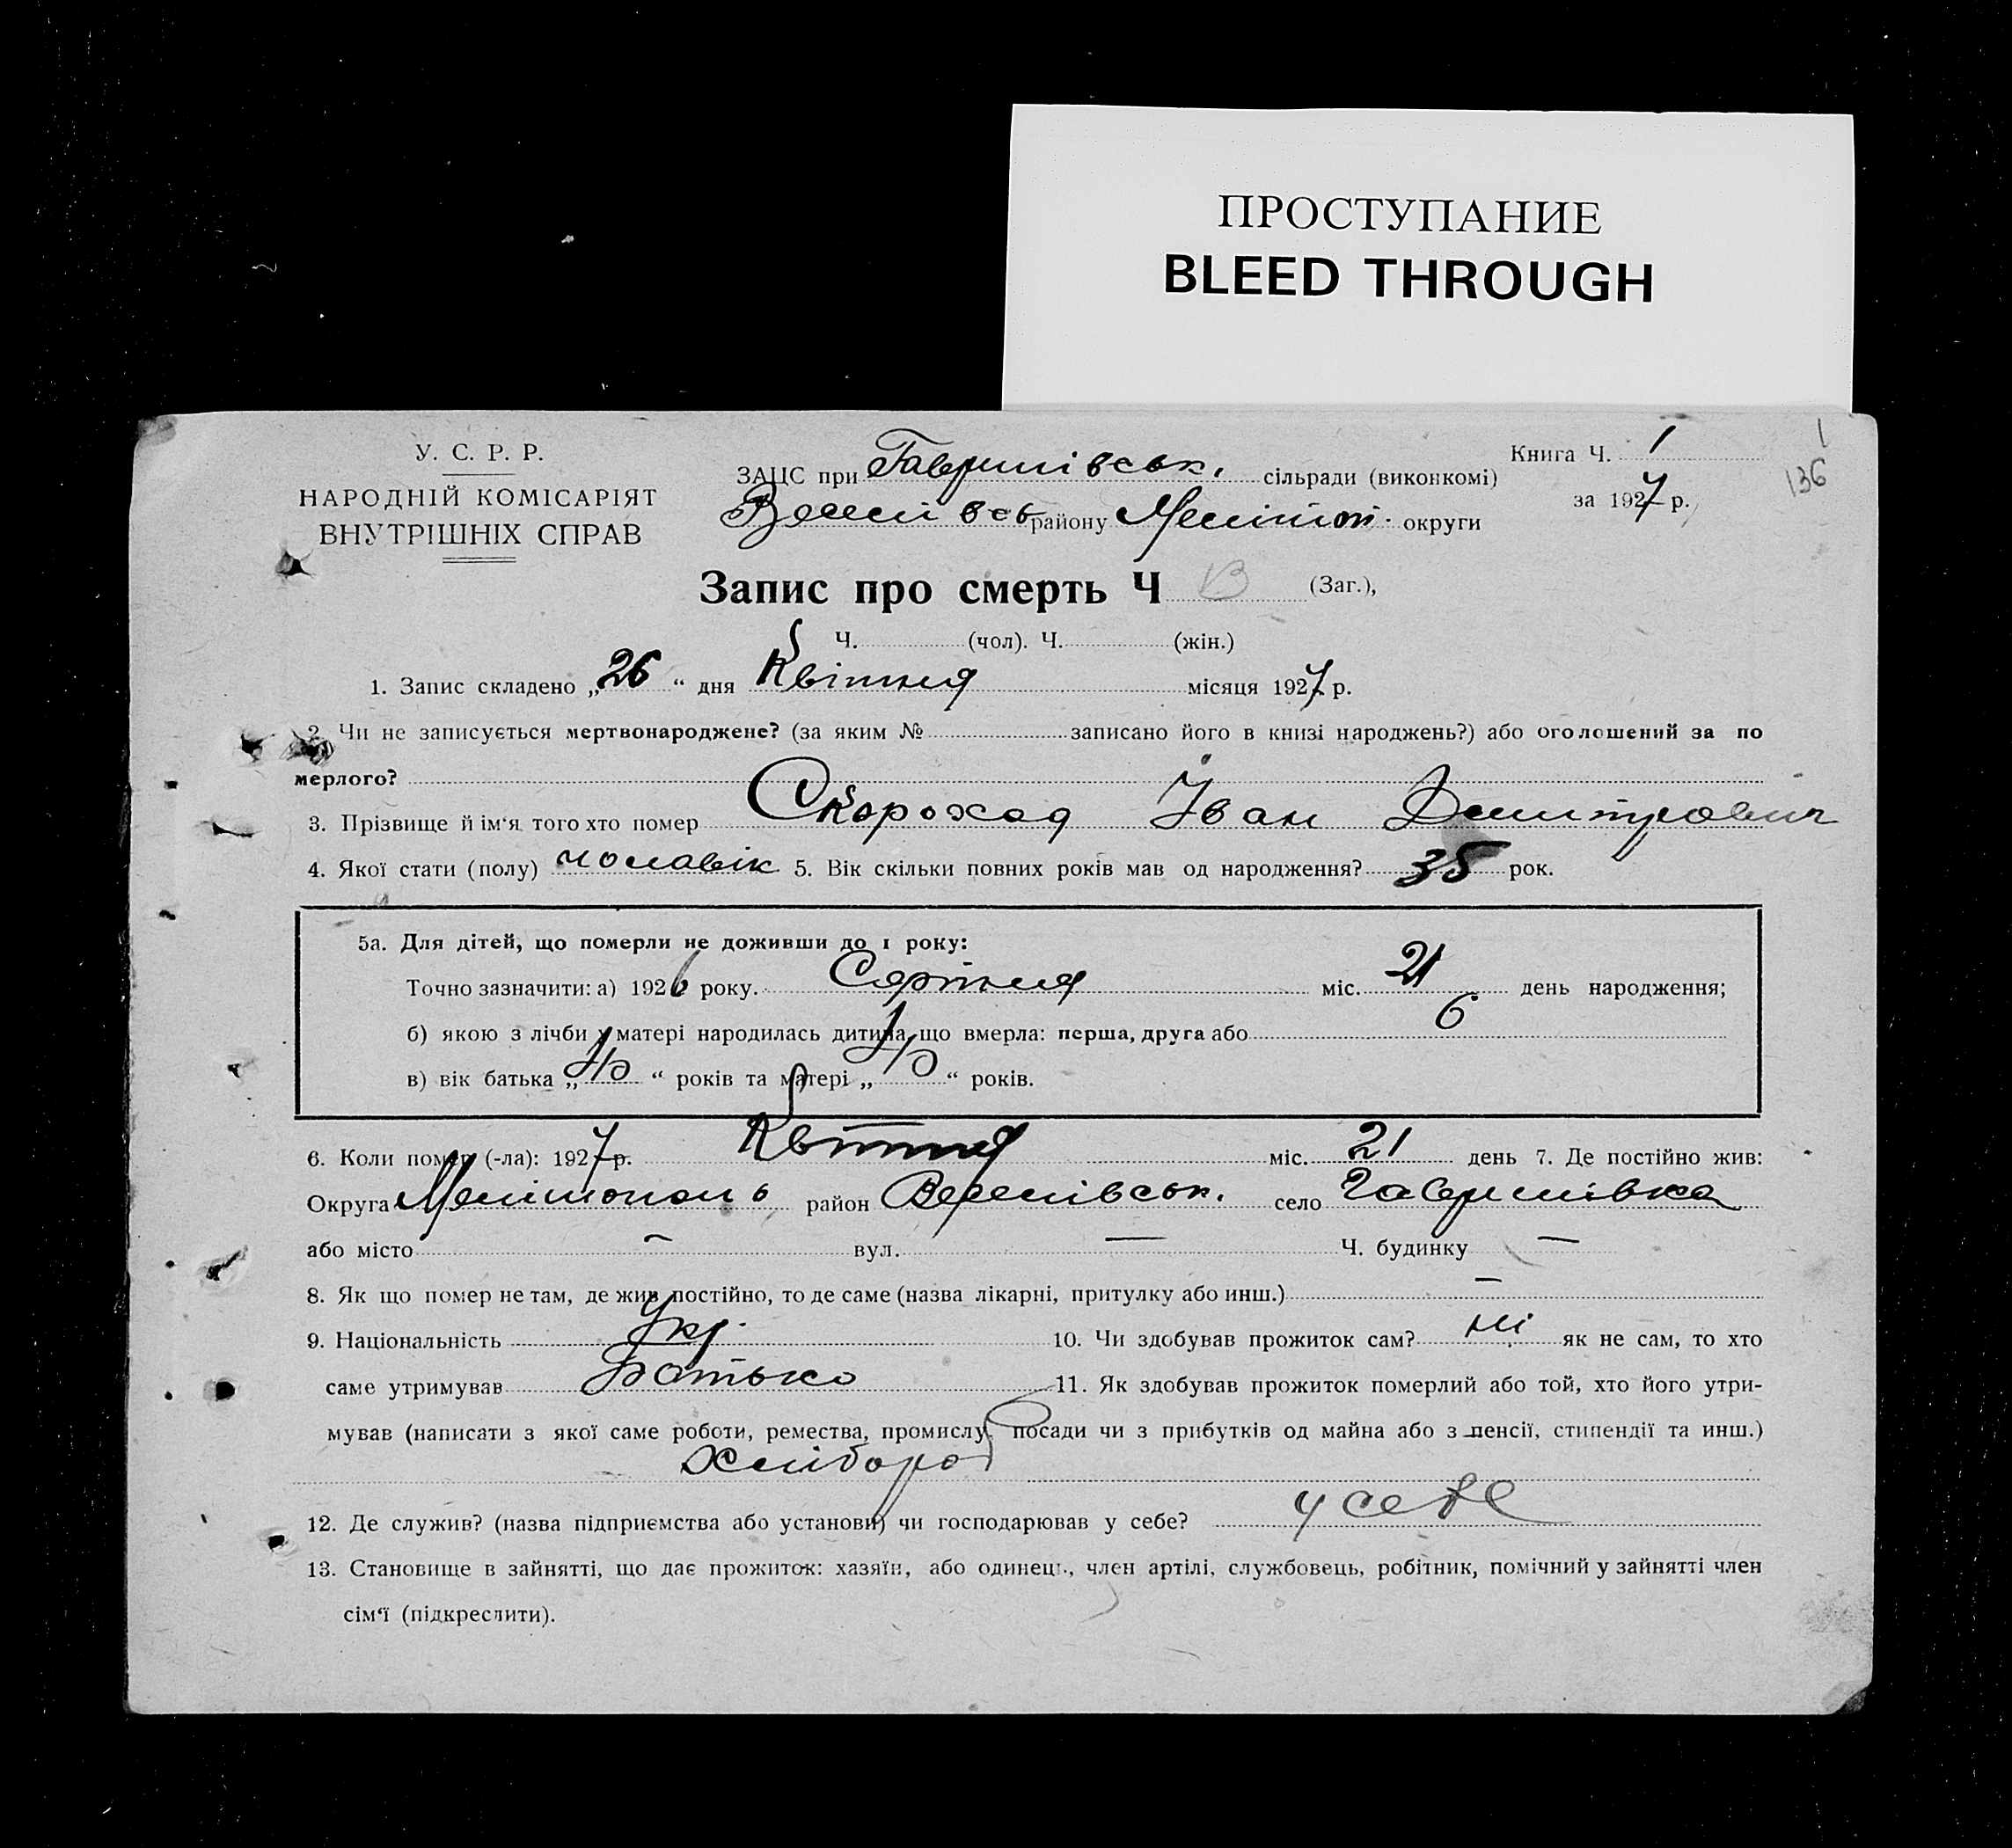 ПРОСТУПАНИЕ
BLEED THROUGH
У. С. Р. Р.
НАРОДНІЙ КОМІСАРІЯТ
ВНУТРІШНІХ СПРАВ
ЗАЦС при Гаврилівськ. сільради (виконкомі)
району Мелітоп. округи
Книга Ч. 1
за 1927 р.
1
136
Запис про смерть Ч (Заг.),
Ч. (чол). Ч. (жін.)
1. Запис складено „26“ дня Квітня місяця 1927 р.
2. Чи не записується мертвонароджене? (за яким № записано його в книзі народжень?) або оголошений за по
мерлого?
3. Прізвище й ім‘я того хто помер Скороход Іван Дмитрович
4. Якої стати (полу) чоловік 5. Вік скільки повних років мав од народження? 35 рок.
5а. Для дітей, що померли не доживши до 1 року:
Точно зазначити: а) 1926 року. Серпня міс. 21 день народження;
б) якою з лічби у матері народилась дитина що вмерла: перша, друга або 6
в) вік батька „ “ років та матері „ “ років.
6. Коли помер (-ла): 1927 р. Квітня міс. 21 день 7. Де постійно жив:
Округа Мелітополь район село Гаврилівка
або місто — вул. — Ч. будинку —
8. Як що помер не там, де жив постійно, то де саме (назва лікарні, притулку або инш.) —
9. Національність Укр. 10. Чи здобував прожиток сам? ні як не сам, то хто
саме утримував Батько 11. Як здобував прожиток померлий або той, хто його утри-
мував (написати з якої саме роботи, ремества, промислу, посади чи з прибутків од майна або з пенсії, стипендії та инш.)
Хлібороб
12. Де служив? (назва підприємства або установи) чи господарював у себе? у себе
13. Становище в зайнятті, що дає прожиток: хазяїн, або одинець, член артілі, службовець, робітник, помічний у зайнятті член
сім‘ї (підкреслити).